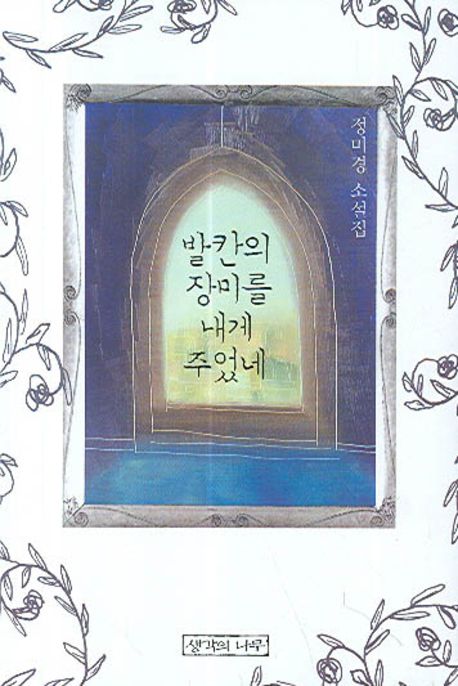 정미경 소설집
발칸의
장미를
내게
주었네
생각의 나무